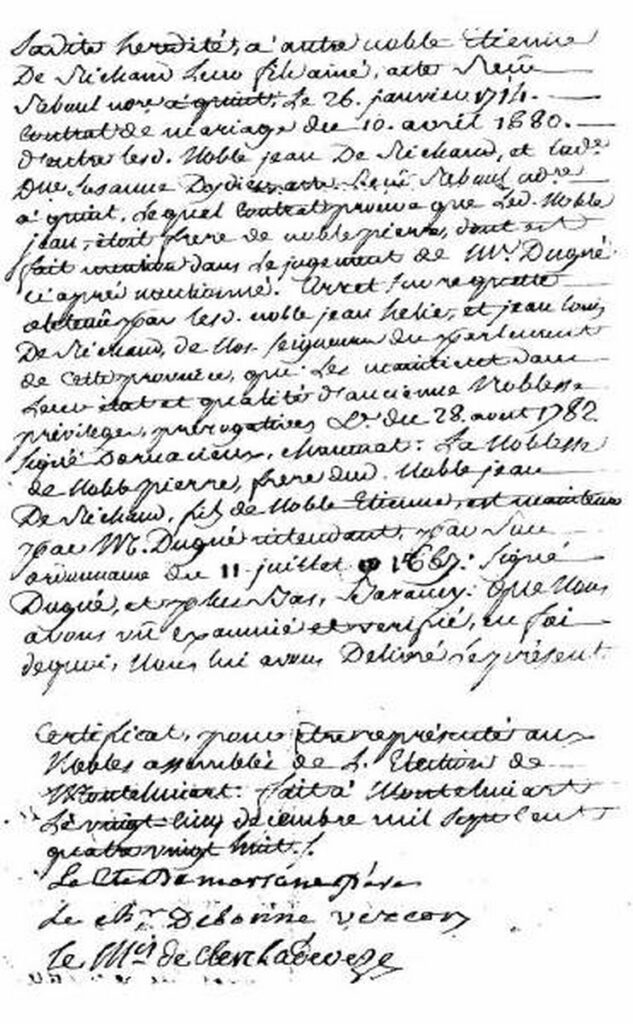 Ladite heredité, a autre noble Etienne
De Richaud Leur fils ainé, acte Reçu
Reboul nore a quint, Le 26. janvier 1714.
Contrat de mariage du 10. avril 1680.
d'entre lesd. Noble jean De Richaud, et lade
Dlle Susanne Reçu Reboul nore
a quint, Lequel Contrat prouve que Led. Noble
jean, étoit frere de noble pierre, dont est
fait mention dans Le jugement de Mr. Dugué
ci après mentionné. Arret sur requette
obtenu par lesd. noble jean helie, et jean louis
De Richaud, de Nos seigneurs du parlement
de Cette province, que Les maintient dans
Leur état et qualité d'ancienne Noblesse
privileges, prerogatives &a. du 28. aout 1782.
signé : La Noblesse
de Noble pierre, frere dud. Noble jean
De Richaud, fils de Noble Etienne, est maintenue
par M. Dugué intendant, par Son
ordonnance du 11 juillet 1667: Signé
Dugué, et plus Bas, : Que Nous
avons vû examiné et verifié, en foi
dequoi, Nous lui avons Delivré Le present.
Certificat, pour être representé aux
Nobles assemblés de L. Election de
Montelimart: fait a Montelimart
Le vingt cinq decembre mil Sept Cent
quatre vingt huit./.
Le Cte De
Le chr. De
le Mis de